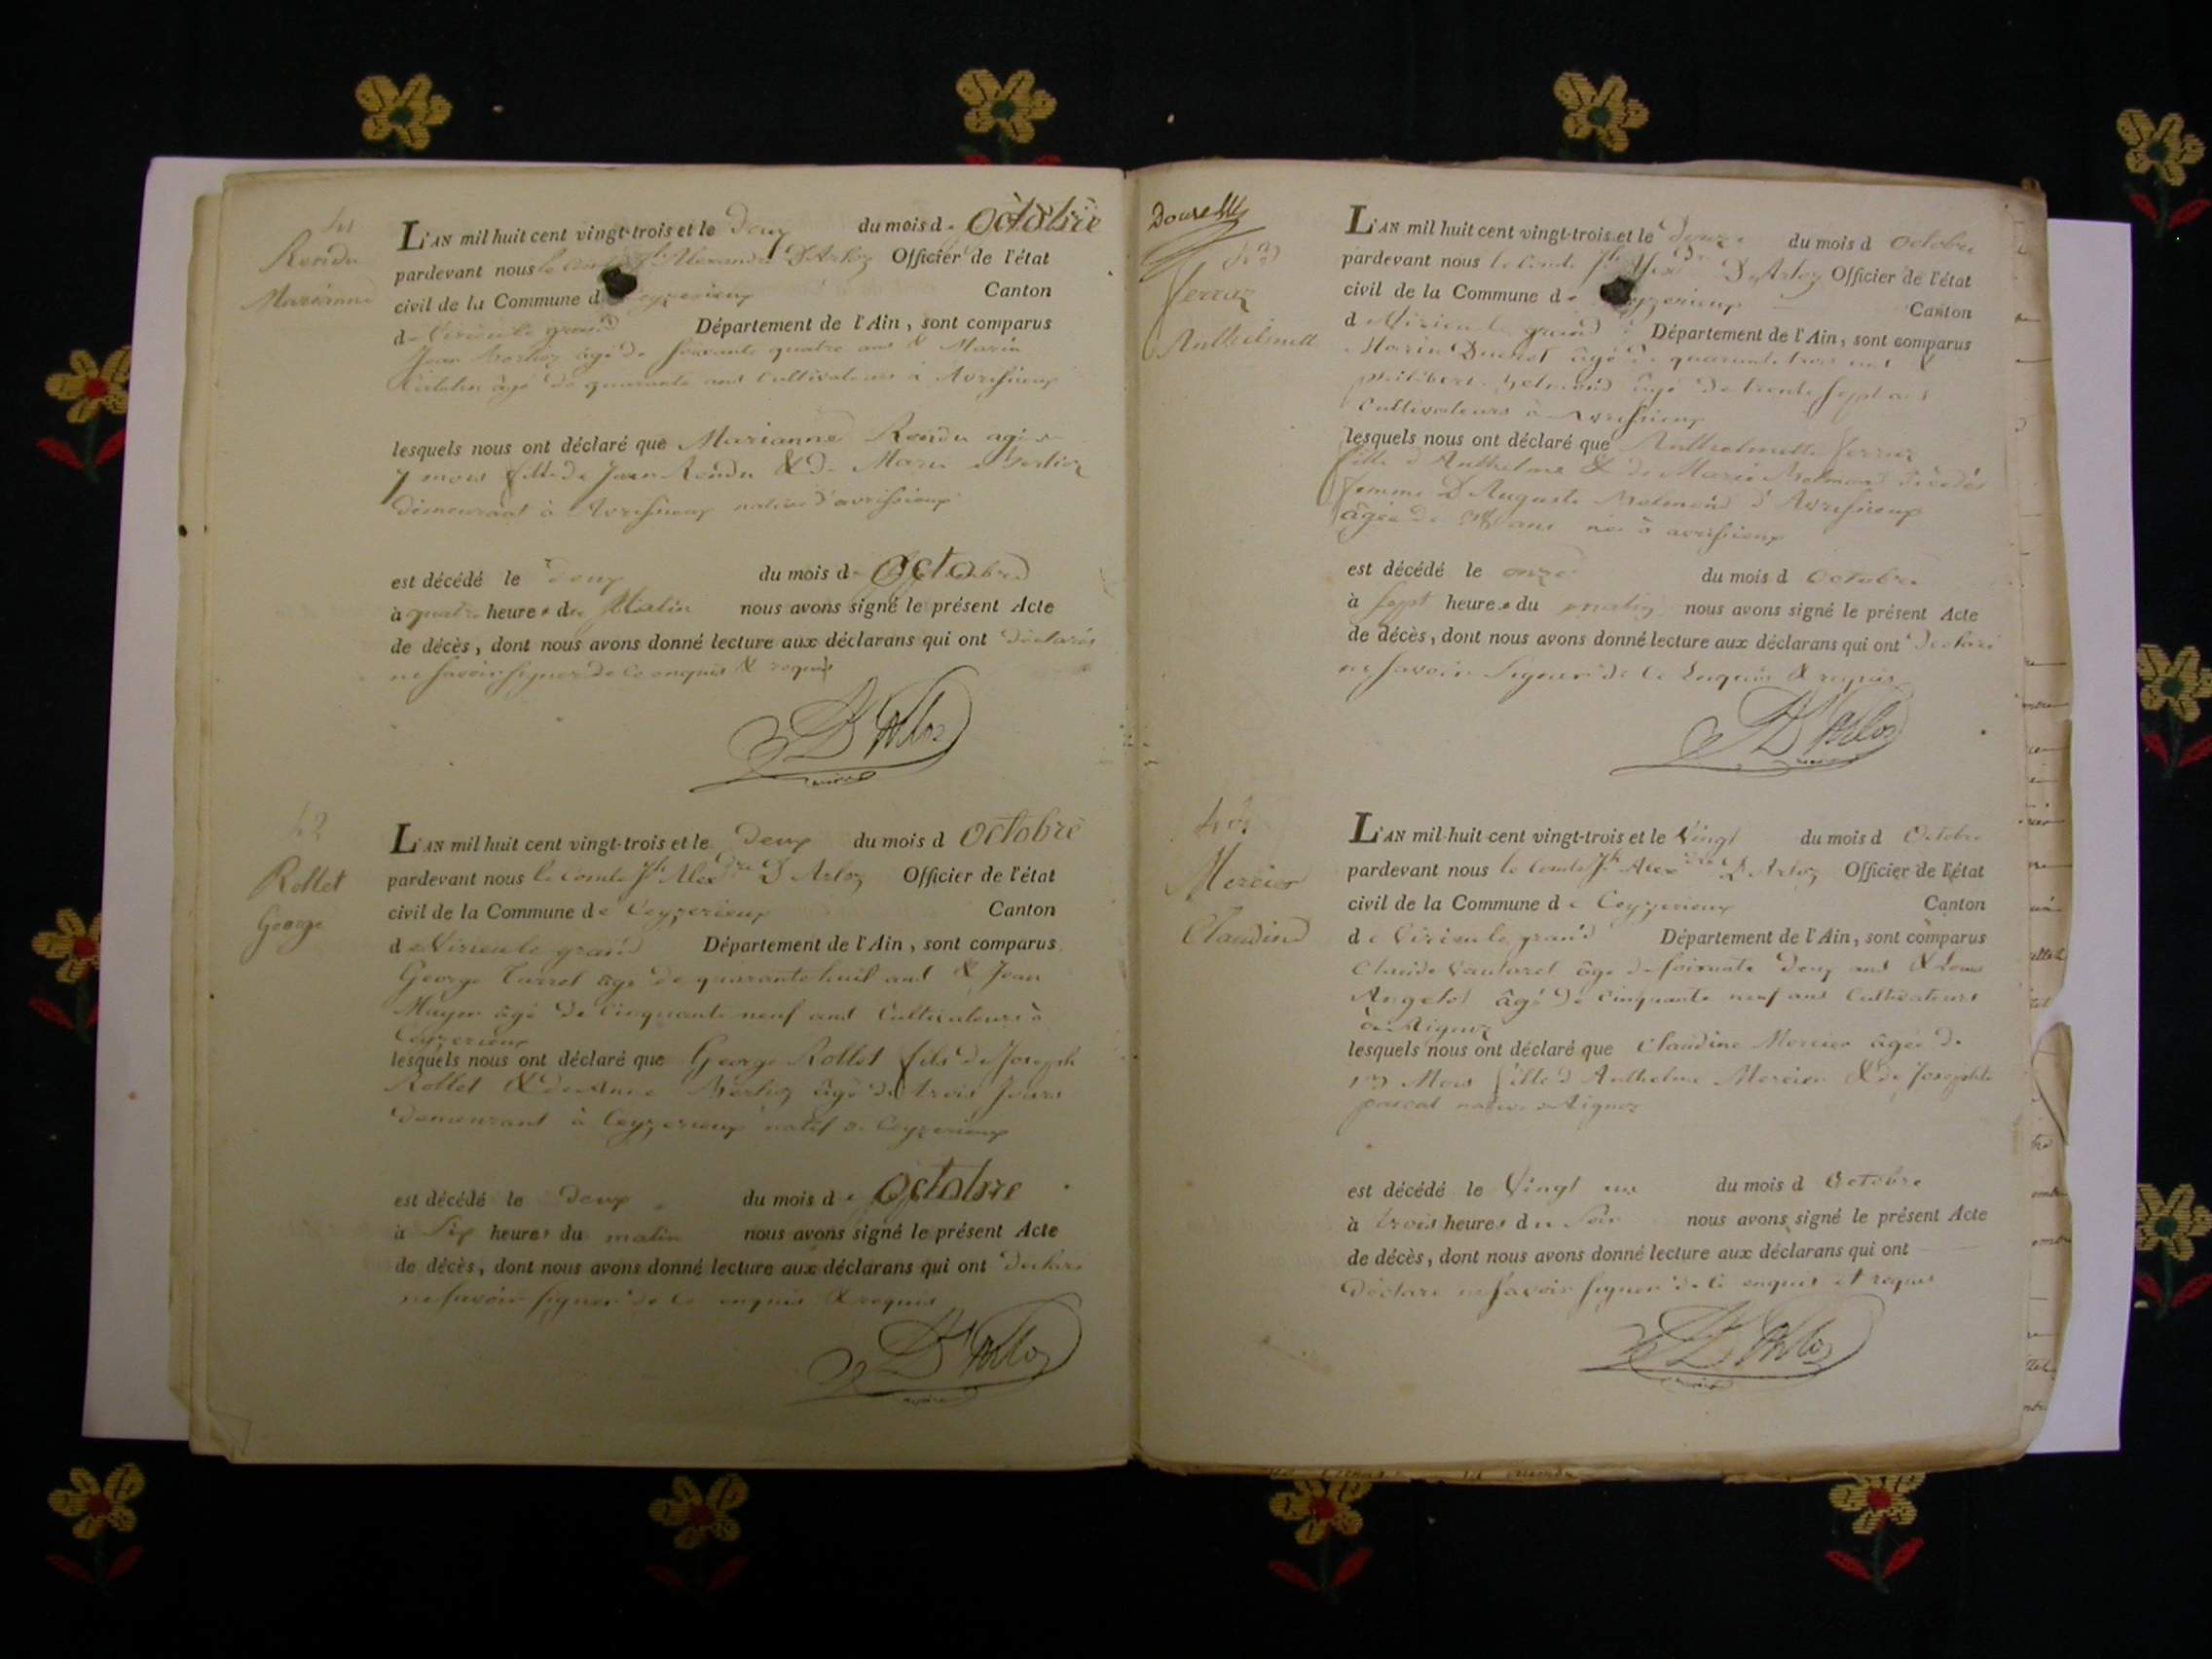 41
Rendu
Marianne
L'AN mil huit cent vingt-trois et le Deux du mois de Octobre
pardevant nous le Comte Jh Alexandre D'Arloz Officier de l'état
civil de la Commune de Ceyzerieux Canton
de Virieu le grand Département de l'Ain, sont comparus
Jean Berlioz âgé de soixante quatre ans & Marin
âgé de quarante ans Cultivateurs à Avrissieux
lesquels nous ont déclaré que Marianne Rendu agée
7 mois fille de Jean Rendu & de Marie Berlioz
demeurant à Avrissieux native d'avrissieux
est décédé le deux du mois de Octobre
à quatre heures du Matin nous avons signé le présent Acte
de décès, dont nous avons donné lecture aux déclarans qui ont déclarés
ne savoir signer de ce enquis & requis
D'Arloz
42
Rollet
George
L'AN mil huit cent vingt-trois et le Deux du mois d Octobre
pardevant nous le Comte Jh Alexdre D'Arloz Officier de l'état
civil de la Commune de Ceyzerieux Canton
de Virieu le grand Département de l'Ain, sont comparus
George Carrel âgé de quarante huit ans & Jean
âgé de Cinquante neuf ans Cultivateurs à
Ceyzerieux
lesquels nous ont déclaré que George Rollet fils de Joseph
Rollet & de Anne Berlioz âgé de trois jours
demeurant à Ceyzerieux natif de Ceyzerieux
est décédé le deux du mois de Octobre
à Six heures du matin nous avons signé le présent Acte
de décès, dont nous avons donné lecture aux déclarans qui ont declaré
ne savoir signer de ce enquis & requis
D'Arloz
43
Ferraz
Anthelmette
L'AN mil huit cent vingt-trois et le douze du mois d Octobre
pardevant nous le Comte Jh Alexdre D'Arloz Officier de l'état
civil de la Commune de Ceyzerieux Canton
de Virieu le grand Département de l'Ain, sont comparus
Marin âgé de quarante trois ans &
philibert Belmond âgé de trente sept ans
Cultivateurs à Avrissieux
lesquels nous ont déclaré que Anthelmette Ferraz
fille d'Anthelme & de Marie Belmont décédés
femme D'Auguste Belmond d'Avrissieux
âgée de ans née à avrissieux
est décédé le onze du mois d Octobre
à sept heures du matin nous avons signé le présent Acte
de décès, dont nous avons donné lecture aux déclarans qui ont declaré
ne savoir Signer de ce Enquis & requis
D'Arloz
Mercier
Claudine
L'AN mil huit cent vingt-trois et le Vingt du mois d Octobre
pardevant nous le Comte Jh Alexdre D'Arloz Officier de l'état
civil de la Commune de Ceyzerieux Canton
de Virieu le grand Département de l'Ain, sont comparus
Claude âgé de soixante deux ans & Louis
Angelot âgé de Cinquante neuf ans Cultivateurs
à Aignoz
lesquels nous ont déclaré que Claudine Mercier âgée de
13 Mois fille d'Anthelme Mercier & de Josephte
pascal native d'Aignoz
est décédé le Vingt un du mois d Octobre
à trois heures du Soir nous avons signé le présent Acte
de décès, dont nous avons donné lecture aux déclarans qui ont
déclaré ne savoir signer de ce enquis et requis
D'Arloz